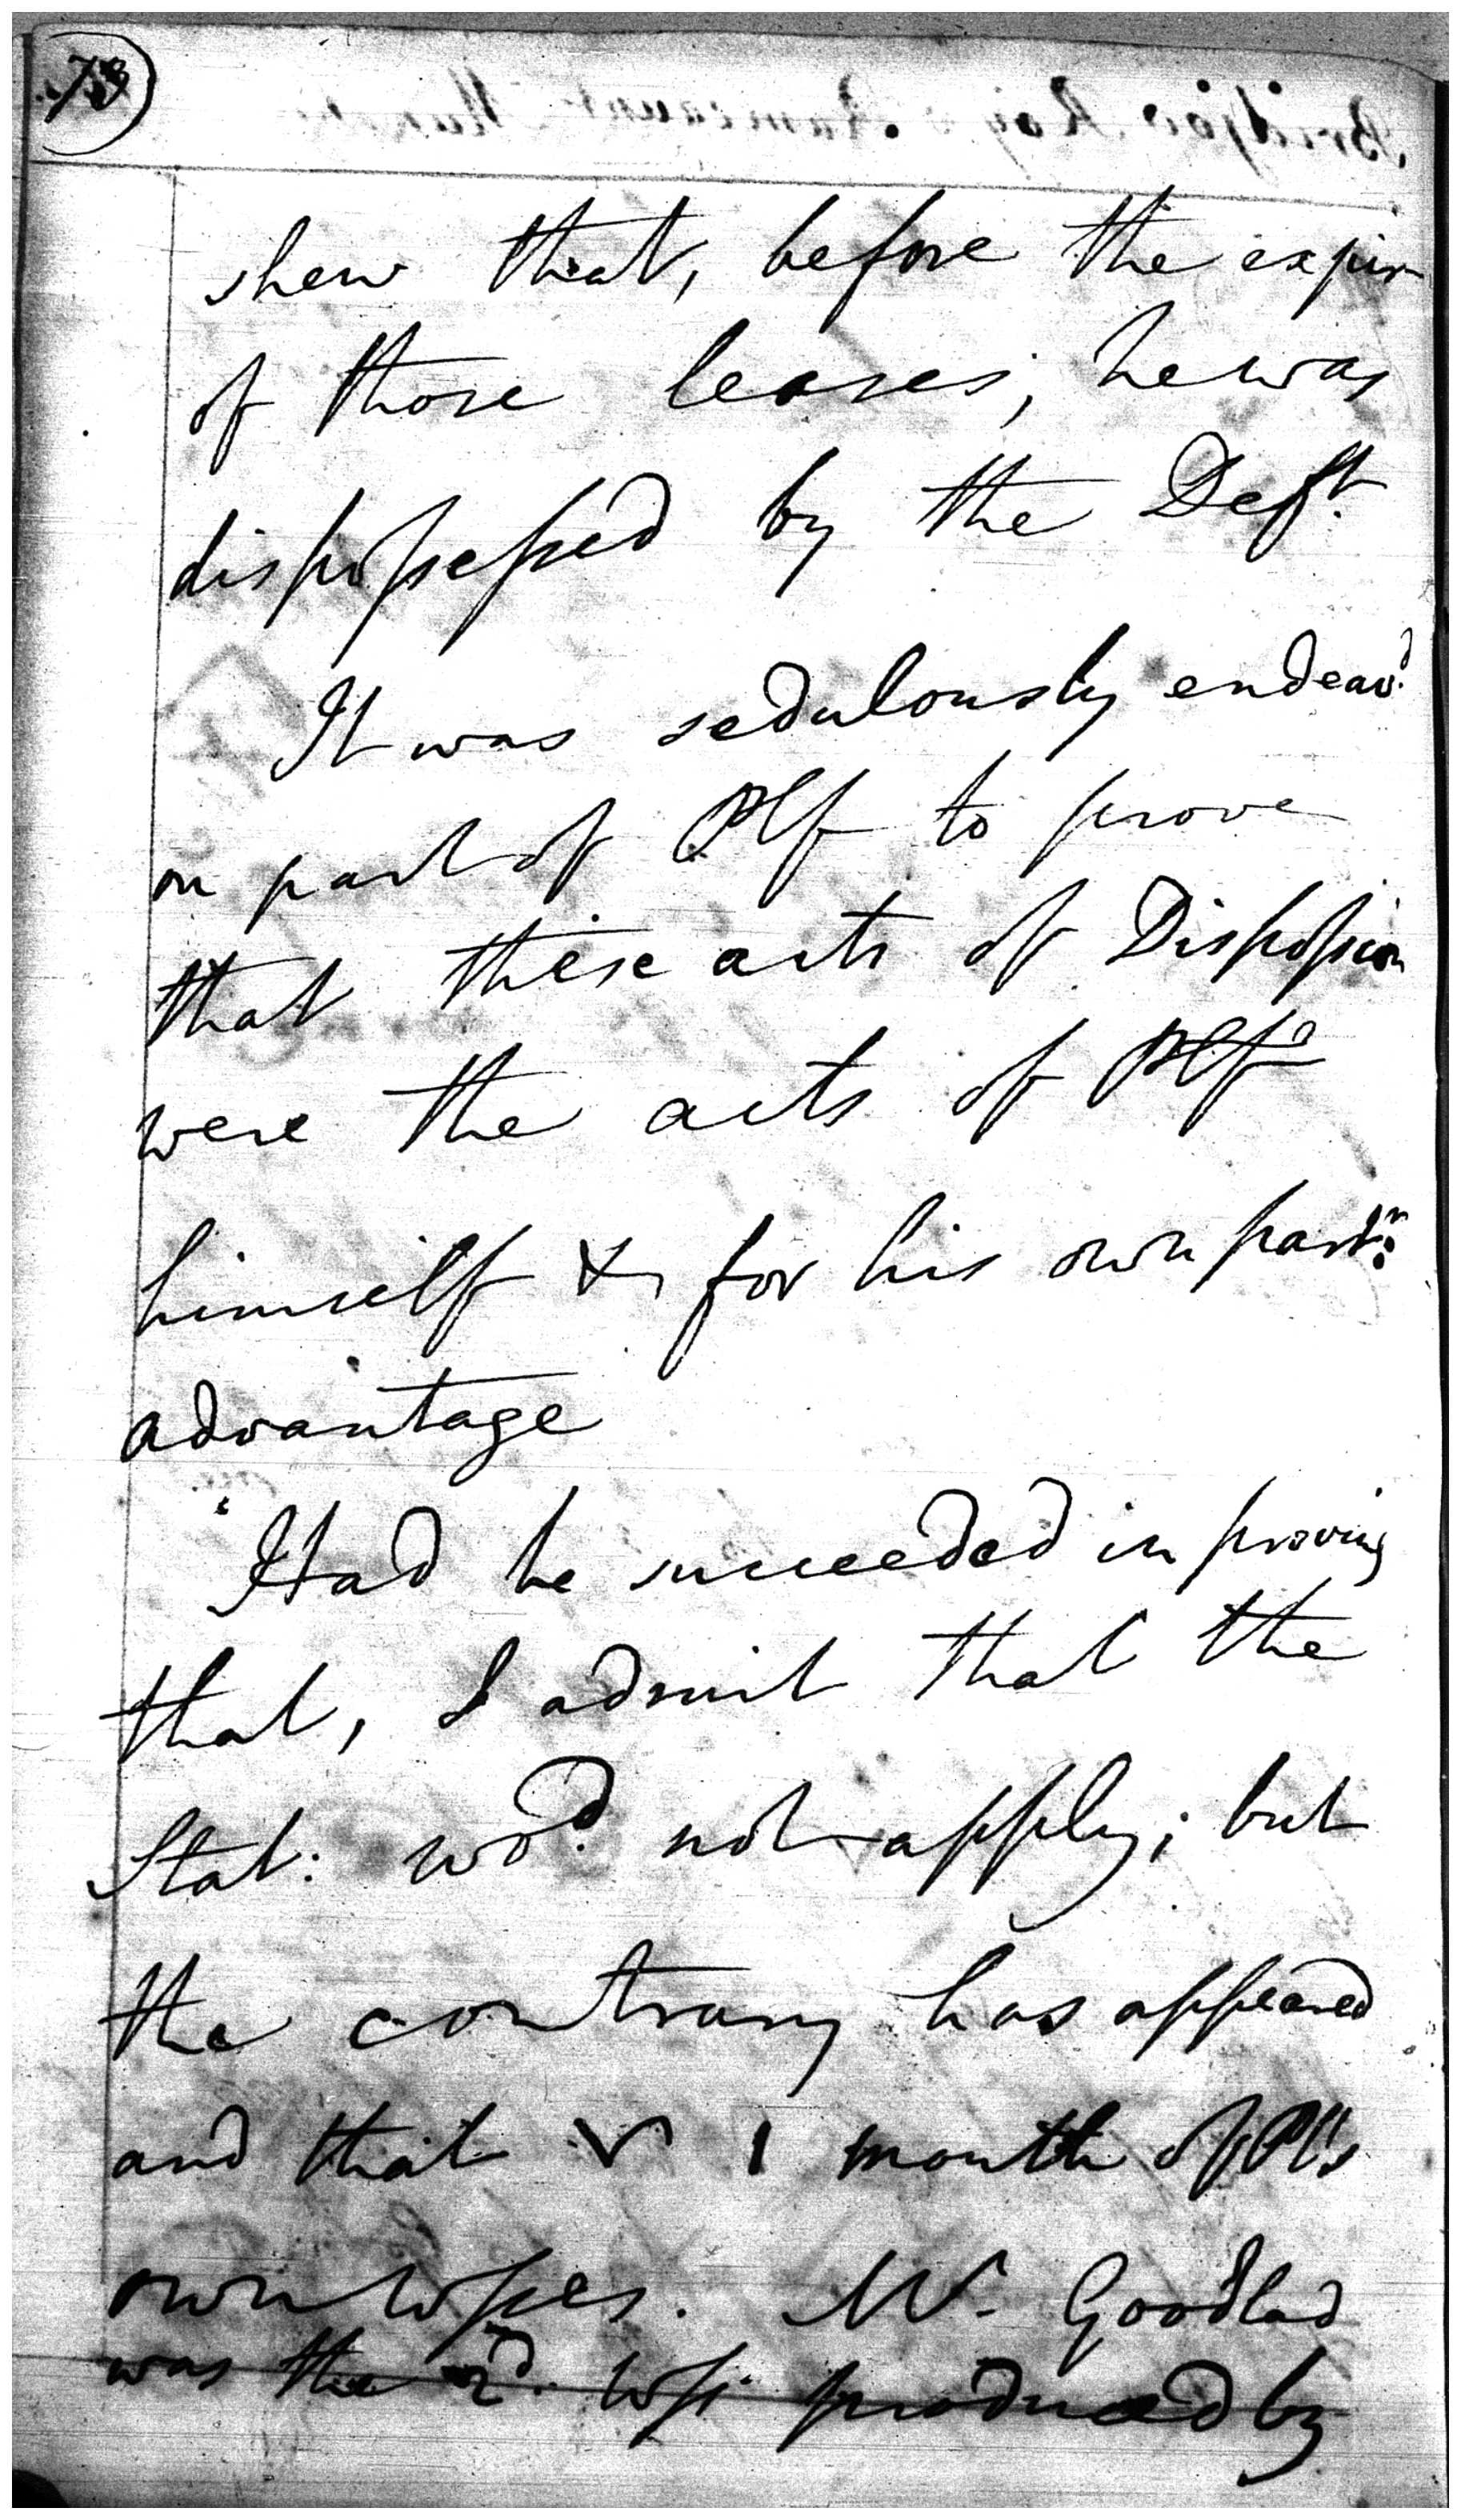 73
shew that, before the expir
of those leases, he was
dispossessed by the Deft.
It was sedulously endeavd.
on part of Plf to prove
that these acts of Disposssion
were the acts of Plf
himself & for his own partr.
advantage
Had he succeeded in proving
that, I admit that the
Stat: wod. not apply; but
the contrary has appeared
and that 1 month of Pl's
own wsses. Mr. Goodlad
was the 2d. wss produced by